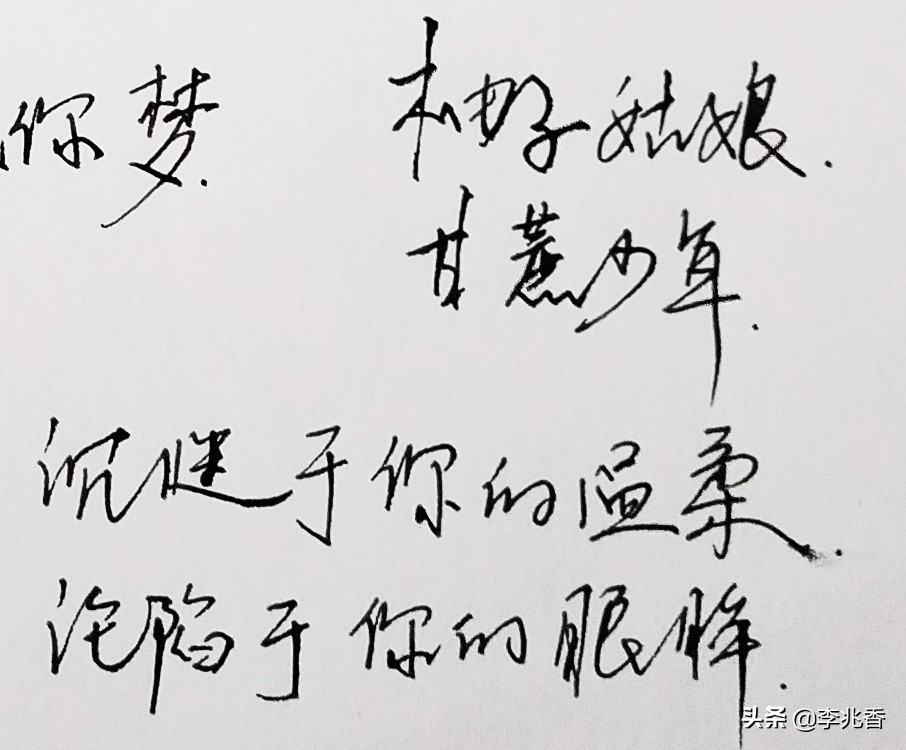 你梦. 柚子姑娘.
甘蔗少年.
沉迷于你的温柔.
沦陷于你的眼眸.
头条 @李兆香